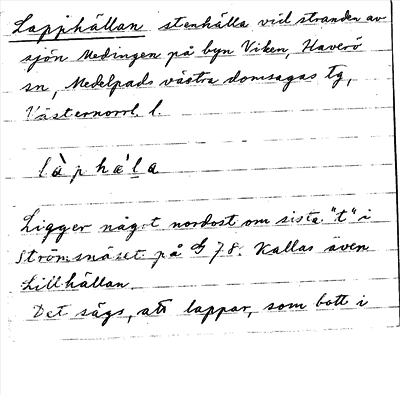 Lapphällan stenhälla vid stranden av
sjön Medingen på byn Viken, Haverö
sn, Medelpads västra domsagas tg,
Västernorrl. l.
làphæ'la
Ligger något nordost om sista "t" i
Strömsnäset på 78. Kallas även
Lillhällan.
Det sägs, att lappar, som bott i